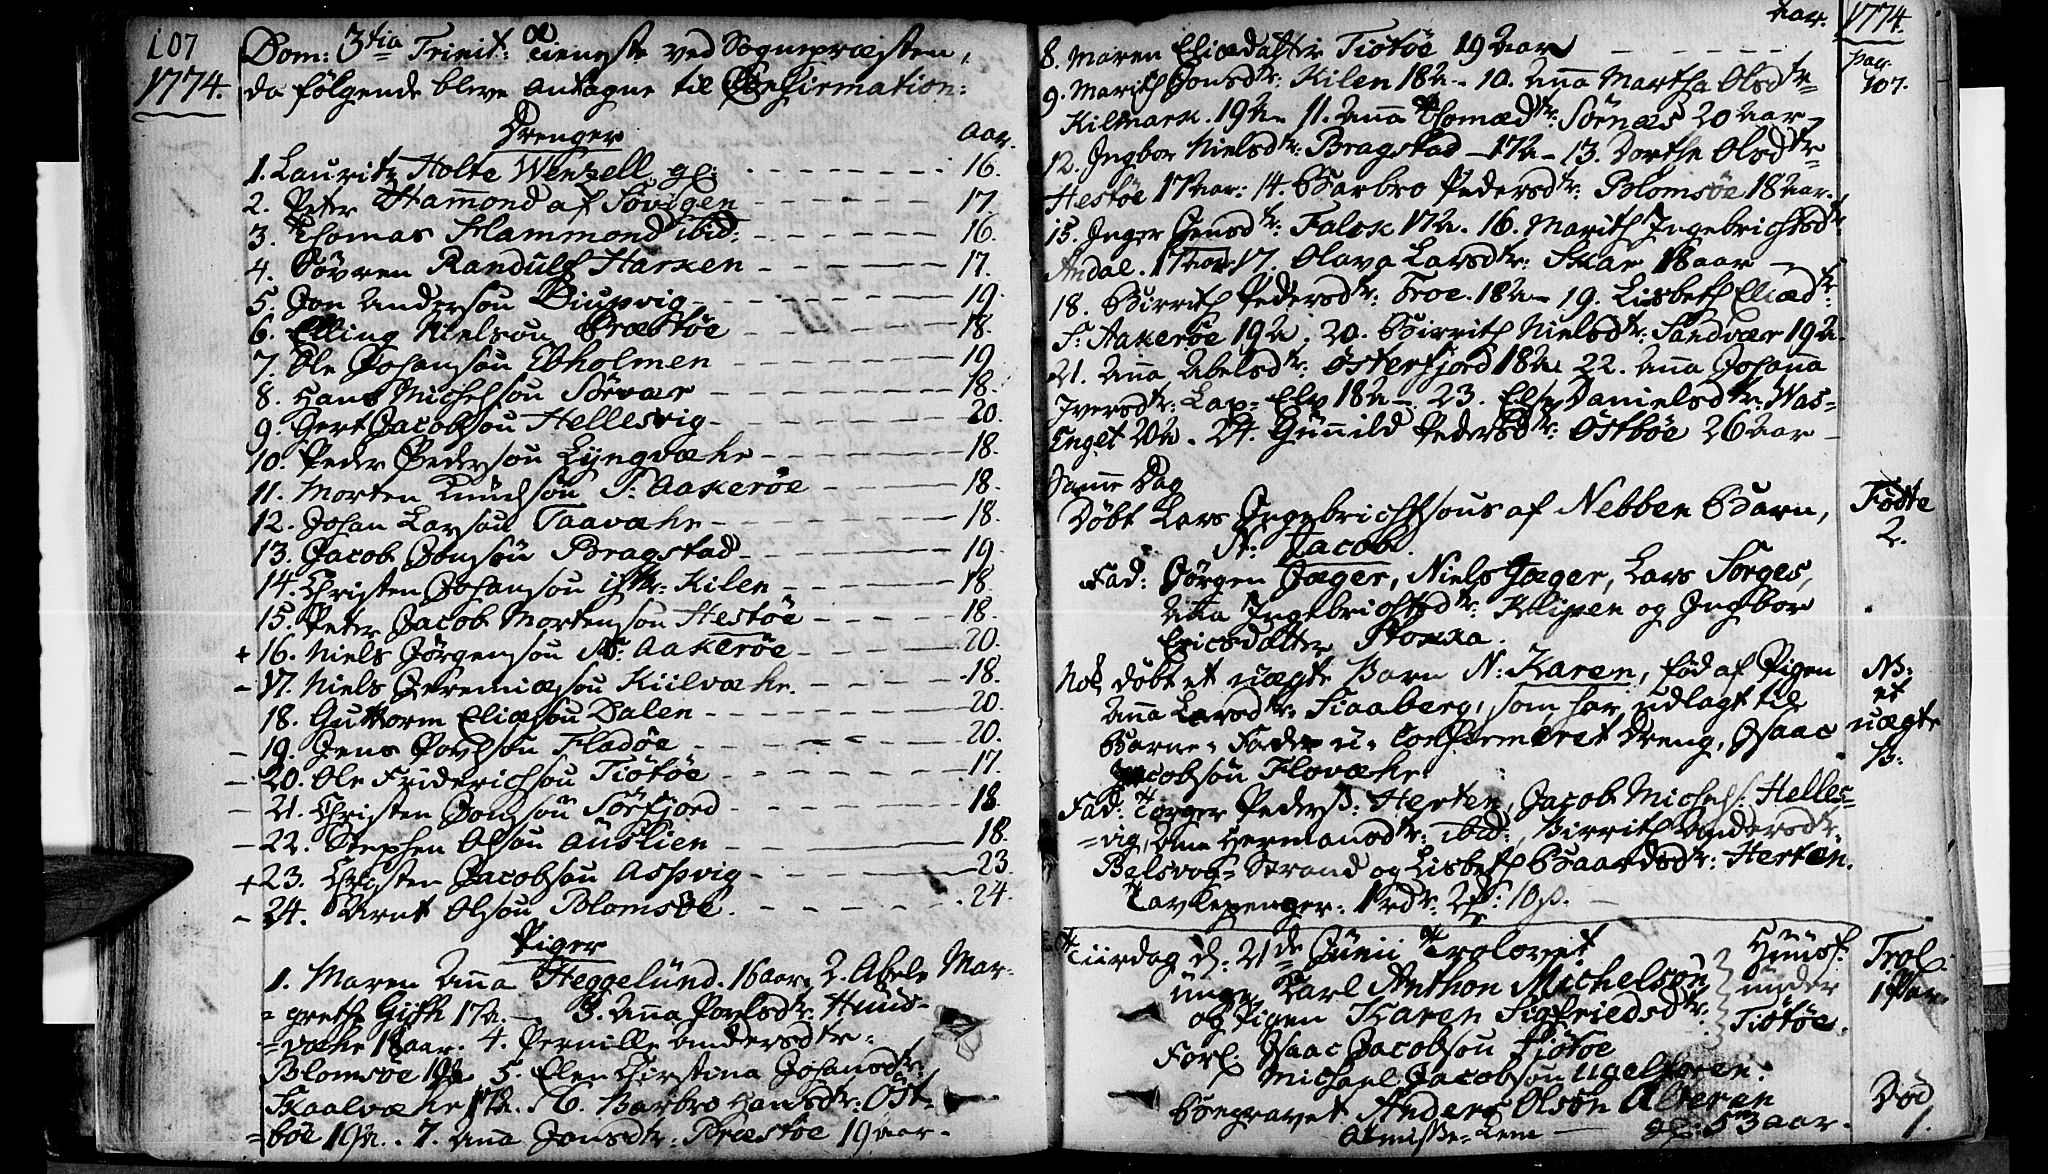 107
1774.
Dom: 3tia Trinit: Tieneste ved Sognepræsten,
da følgende bleve antagne til Confirmation:
Drenger
aar.
1. Lauritz Holte Wenzell gl: 16.
2. Peter Hammond af Søvigen 17
3. Thomas Hammond ibid: 16.
4. Søvren Randulf Harken 17.
5. Jon Andersøn Diupvig 19.
6. Elling Nielsøn Præstøe 18.
7. Ole Johansøn Ebholmen 19
8. Hans Michelsøn Sørvær 18.
9. Gert Jacobsøn Hellesvig 20.
10. Peder Pedersøn Lyngvæhr 18.
11. Morten Knudsøn S: Aakerøe 18.
12. Johan Larsøn Taavæhr 18.
13. Jacob Jonsøn Bragstad 19.
14. Christen Johansøn Kilen 18.
15. Peter Jacob Mortensøn Hestøe 18.
+ 16. Niels Jørgensøn N: Aakerøe 20.
- 17. Niels Jeremiæsøn Kiilvæhr. 18.
18. Guttorm Eliæsøn Dalen 20.
- 19. Jens Povlsøn Fladøe 20.
- 20. Ole Friderichsøn Tiøtøe 17.
- 21. Christen Jonsøn Sørfjord 18
- 22. Stephen Olsøn Austlien 18.
+ 23. Christen Jacobsøn Aspvig 23.
- 24. Arnt Olsøn Blomsøe. 24.
Piger
1. Maren Anna Heggelund. 16 aar, 2. Abele Mar-
grethe Gisth 17a. 3. Anna Povlsdtr: Hund-
væhr 18 aar. 4. Pernille Andersdtr:
Blomsøe 19a 5. Elen Christina Johansdtr:
Skaalvæhr 17a. 6. Barbro Hansdtr: Øst-
bøe 19a. 7. Anna Jonsdtr: Præstøe 19 aar.
aar. 1774.
pag.
107.
8. Maren Eliædatter Tiøtøe 19 aar
9. Marith Jonsdtr: Kilen 18a 10. Anna Martha Olsdtr
Kilmark. 19a 11. Anna Thomædtr: Sørnæs 20 aar
12. Ingbor Nielsdtr: Bragstad 17a 13. Dorthe Olsdtr
Hestøe 17 aar: 14. Barbro Pedersdtr: Blomsøe 18 aar.
15. Inger Jensdtr: Falok 17a. 16. Marith Ingebrichtsdtr
Andal. 17 aar 17. Olava Larsdtr: Skar 18 aar
18. Birrith Pedersdtr: Troe. 18a 19. Lisbeth Eliædtr:
S: Aakerøe 19a. 20. Birrith Nielsdtr: Sandvær 19a
21. Anna Abelsdtr: Østerfjord 18a 22. Anna Johanna
Iversdtr: Lap: Elv 18a 23. Else Danielsdtr: Was-
Enget 20a. 24. Gunild Pedersdtr: Østbøe 26 aar
Samme Dag
Døbt Lars Ingebrichtsøns af Nebben Barn, Fødte
N: Jacob. 2.
Fad: Jørgen Jæger, Niels Jæger, Lars Sørges,
Anna Ingebrichtsdtr: Klipen og Ingbor
Ericsdatter Stokka.
Nok døbt et uægte Barn N: Karen, fød af Pigen NB:
Anna Larsdtr: Fiaaberg, som har udlagt til et
Barne-Fader u-confirmeret Dreng, Isaac uægte
Jacobsøn Flovæhr B:
Fad: Torger Peders: Herten, Jacob Michels: Helles-
vig, Ane Hermansdtr: ibid:, Birrith Andersdtr:
Belsvog-Strand og Lisbeth Baardsdtr: Herten.
Tavlepenger. 1 rdr: 2 10 s.
Tiirsdag d: 21de Junii Trolovet Huusf. Trol.
unge Carl Anthon Michelsøn under 1 Par.
og Pigen Karen Sigfriedsdtr: Tiøtøe.
Forl. Isaac Jacobsøn Tiøtøe
Michael Jacobsøn Ugelforen.
Begravet Anders Olsøn Alteren Død
Almisse-Lem gl: 53 aar. 1.